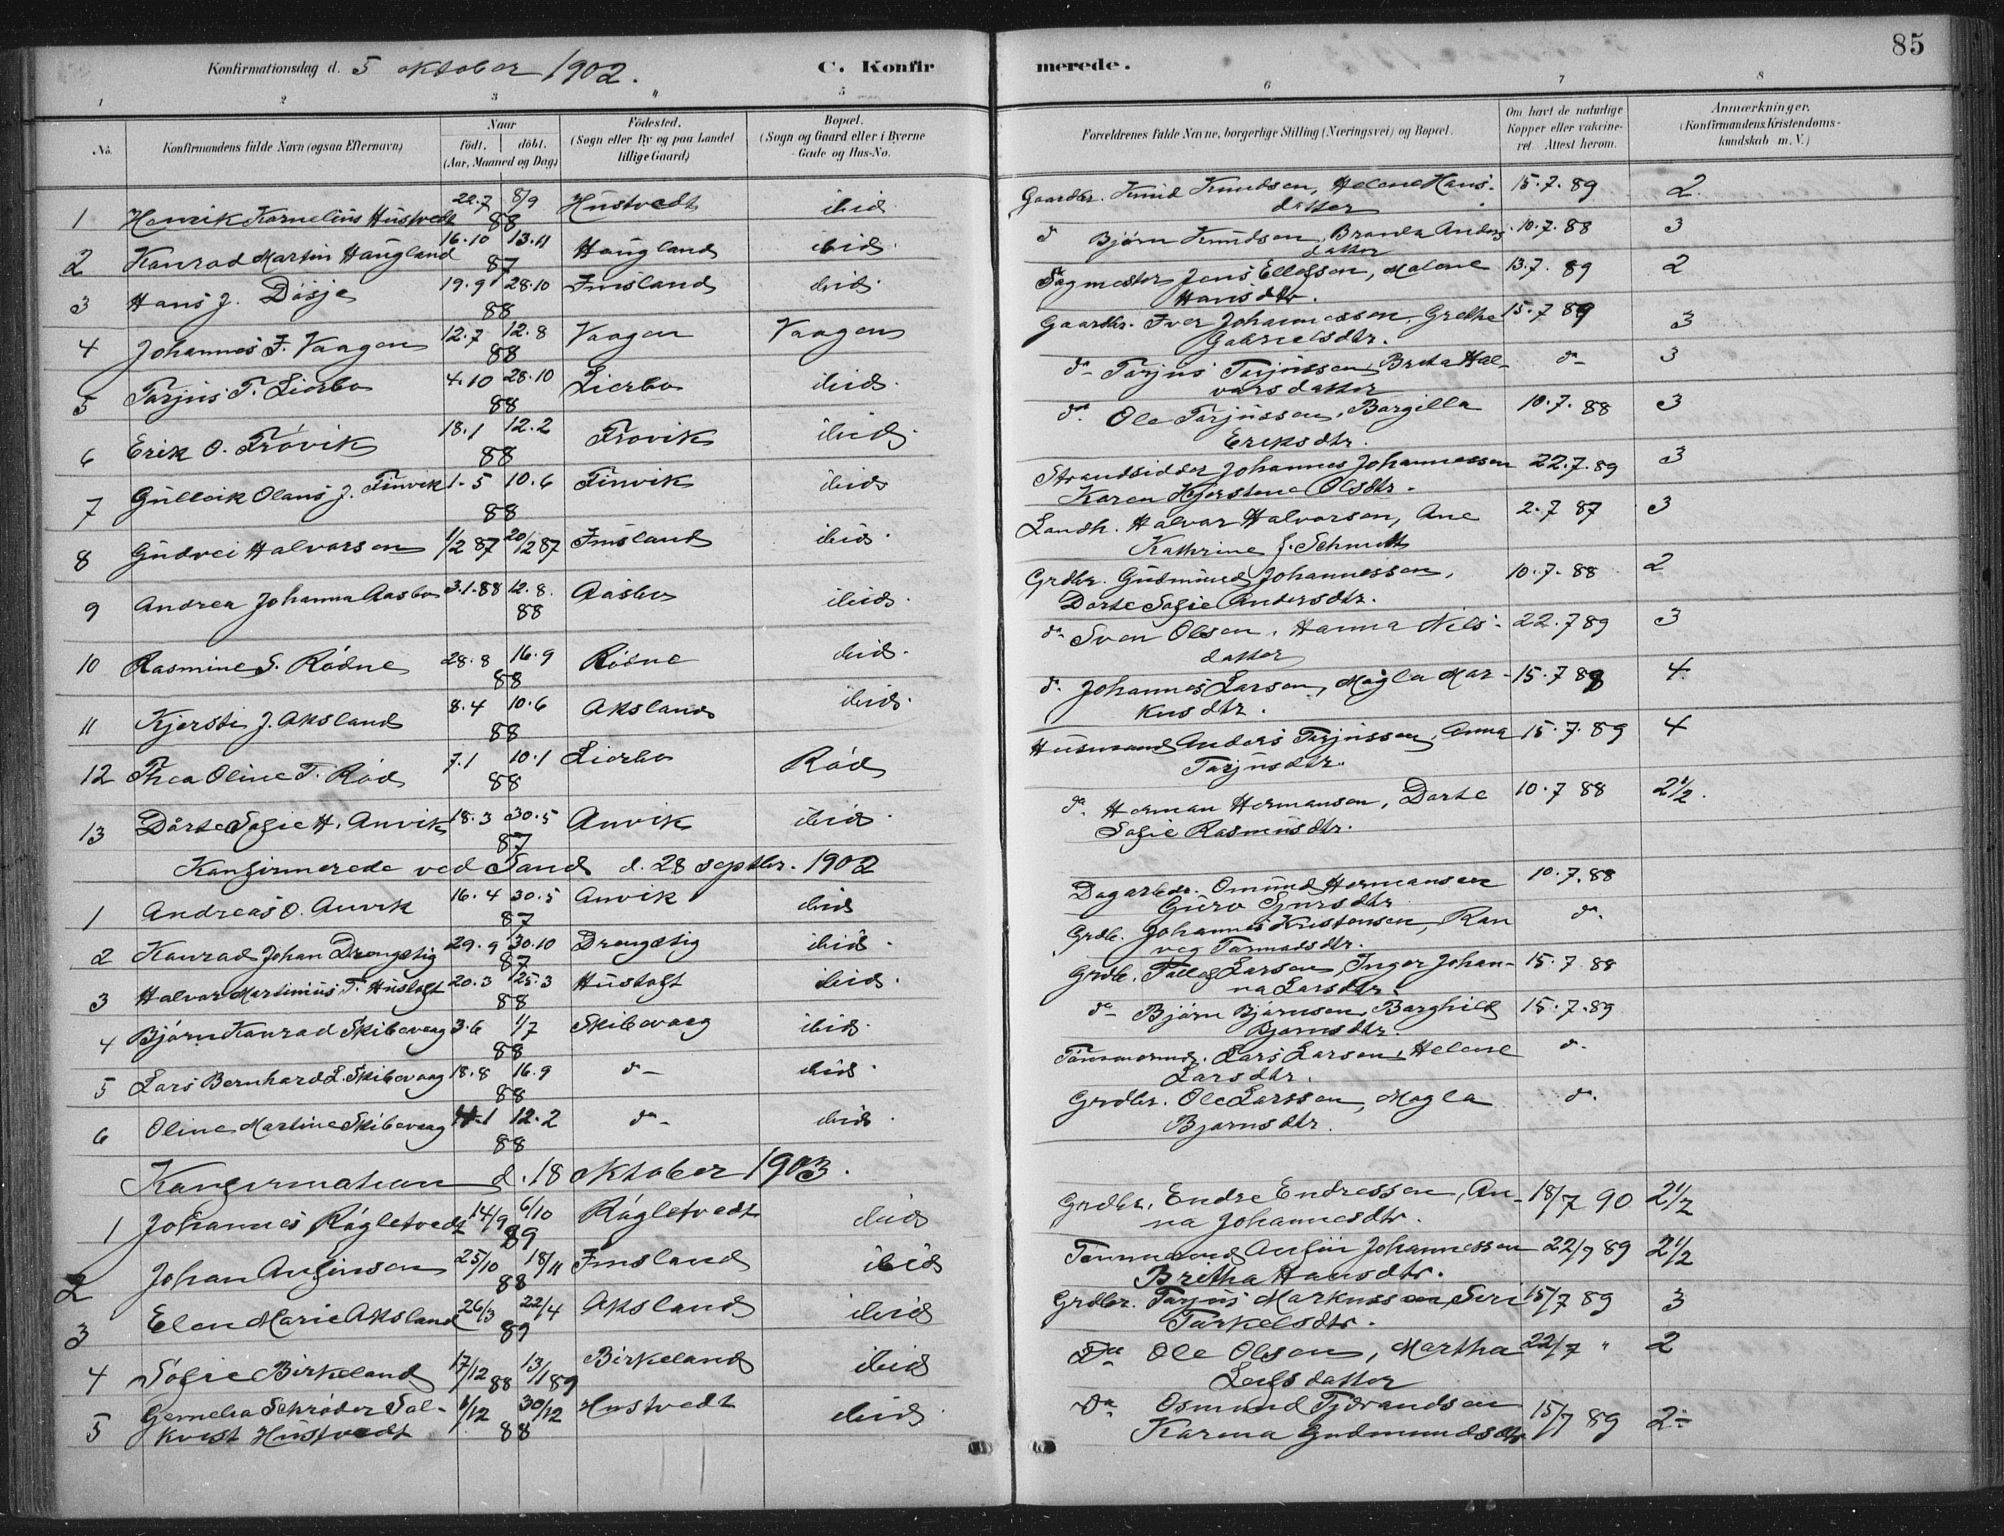 85
Konfirmationsdag d. 5 oktober 1902. C. Konfir merede.
1 2 3 4 5 6 7 8
No. Konfirmandens fulde Navn (ogsaa Efternavn) Naar født. døbt. (Aar, Maaned og Dag) Fødested. (Sogn eller By og paa Landet tillige Gaard) Bopæl. (Sogn og Gaard eller i Byerne Gade og Hus-No. Forældrenes fulde Navne, borgerlige Stilling (Næringsvei) og Bopæl. Om havt de naturlige Kopper eller vakcineret. Attest herom. Anmærkninger. (Konfirmandens Kristendomskundskab m. V.)
1 Henrik Kornelius Hustvedt 22.7 8/9 88 Hustvedt ibid Gaardbr. Knud Knudsen, Helene Hans- datter 15.7.89 2
2 Konrad Martin Haugland 16.10 13.11 87 Haugland ibid. do Bjørn Knudsen, Anders datter 10.7.88 3
3 Hans J. Døsje 19.9 28.10 88 Imsland ibid. Sagmester Jens Ellefsen, Malene Hansdtr. 13.7.89 2
4 Johannes I. Vaagen 12.7 12.8 88 Vaagen Vaagen Gaardbr. Iver Johannessen, Grethe Gabrielsdtr. 15.7 89 3
5 Tarjus T. Lierbo 4.10 28.10 88 Lierbo ibid. do Tarjus Tarjussen, Brita Hal- varsdatter do 3
6 Erik O. Frøvik 18.1 12.2 88 Frøvik ibid. do. Ole Tarjussen, Borgilla Eriksdtr. 10.7.88 3
7 Gulleik Olaus J. Tinvik 1.5 10.6 88 Tinvik ibid Strandsidder Johannes Johannessen Karen Kjerstene Olsdtr. 22.7.89 3
8 Gudvei Halvorsen 1/2 87 20/12 87 Imsland ibid. Landh. Halvar Halvorsen, Ane Kathrine J. Schmidt 2.7 87 3
9 Andrea Johanna Aasbo 3.1.88 12.8. 88 Aasbo ibid. Grdbr. Gudmund Johannessen, Dorte Sofie Andersdtr. 10.7.88 2
10 Rasmine S. Rødne 28.8 16.9 88 Rødne ibid. do Sven Olsen, Hanna Nils- datter 22.7 89 3
11 Kjersti J. Aksland 8.4 10.6 88 Aksland ibid. do. Johannes Larsen, Magla Mar- kusdtr. 15.7 89 4
12 Thea Oline T. Rød 7.1 10.1 88 Lierbo Rød Husmand Anders Tarjussen, Anna Tarjusdtr. 15.7.89 4
13 Dorte Sofie H. Anvik 18.3 30.5 87 Anvik ibid. do. Herman Hermansen, Dorte Sofie Rasmusdtr. 10.7 88 2½.
Konfirmerede ved Sand d. 28 septbr. 1902
1 Andreas O. Anvik 16.4 30.5 87 Anvik ibid Dagarbdr. Omund Hermansen Guro 10.7.88
2 Konrad Johan Drengstig 29.9 30.10 87 Drengstig ibid. Grdb. Johannes Kristensen, Ran veg Tarmodsdtr. do.
3 Halvar Martinius T. Hustoft 20.3 25.3 88 Hustoft ibid. Grdb. Larsen, Inger Johan- na Larsdtr. 15.7.88
4 Bjørn Konrad Skibevaag 3.6 1/7 88 Skibevaag ibid. do Bjørn Bjørnsen, Borghild Bjørnsdtr. 15.7.89
5 Lars Bernhard L. Skibevaag 18.8 16.9 88 do ibid. Tømmermd. Lars Larsen, Helene Larsdtr. do.
6 Oline Martine Skibevaag 12.2 88 do ibid. Grdbr. Ole Larssen, Magla Bjørnsdtr. do.
Konfirmation d. 18 oktober 1903.
1 Johannes Røgletvedt 14/9 6/10 89 Røgletvedt ibid Grdbr. Endre Endressen, An- na Johannesdtr. 18/7 90 2½
2 Johan Anfinsen 25/10 18/11 88 Imsland ibid Tømmermd Anfin Johannessen Britha Hansdtr. 22/7 89 2½
3 Elen Marie Aksland 26/3 22/4 89 Aksland ibid Grdbr. Tarjus Markussen, Siri Tarkelsdtr. 15/7 89 3
4 Sofie Birkeland 17/12 88 13/1 89 Birkeland ibid Do Ole Olsen, Martha Leifsdatter 22/7 " 2
5 Schrøder Sal- kvist Hustvedt 1/12 30/12 88 Hustvedt ibid Do Osmund Karina Gudmundsdtr 15/7 89 2÷